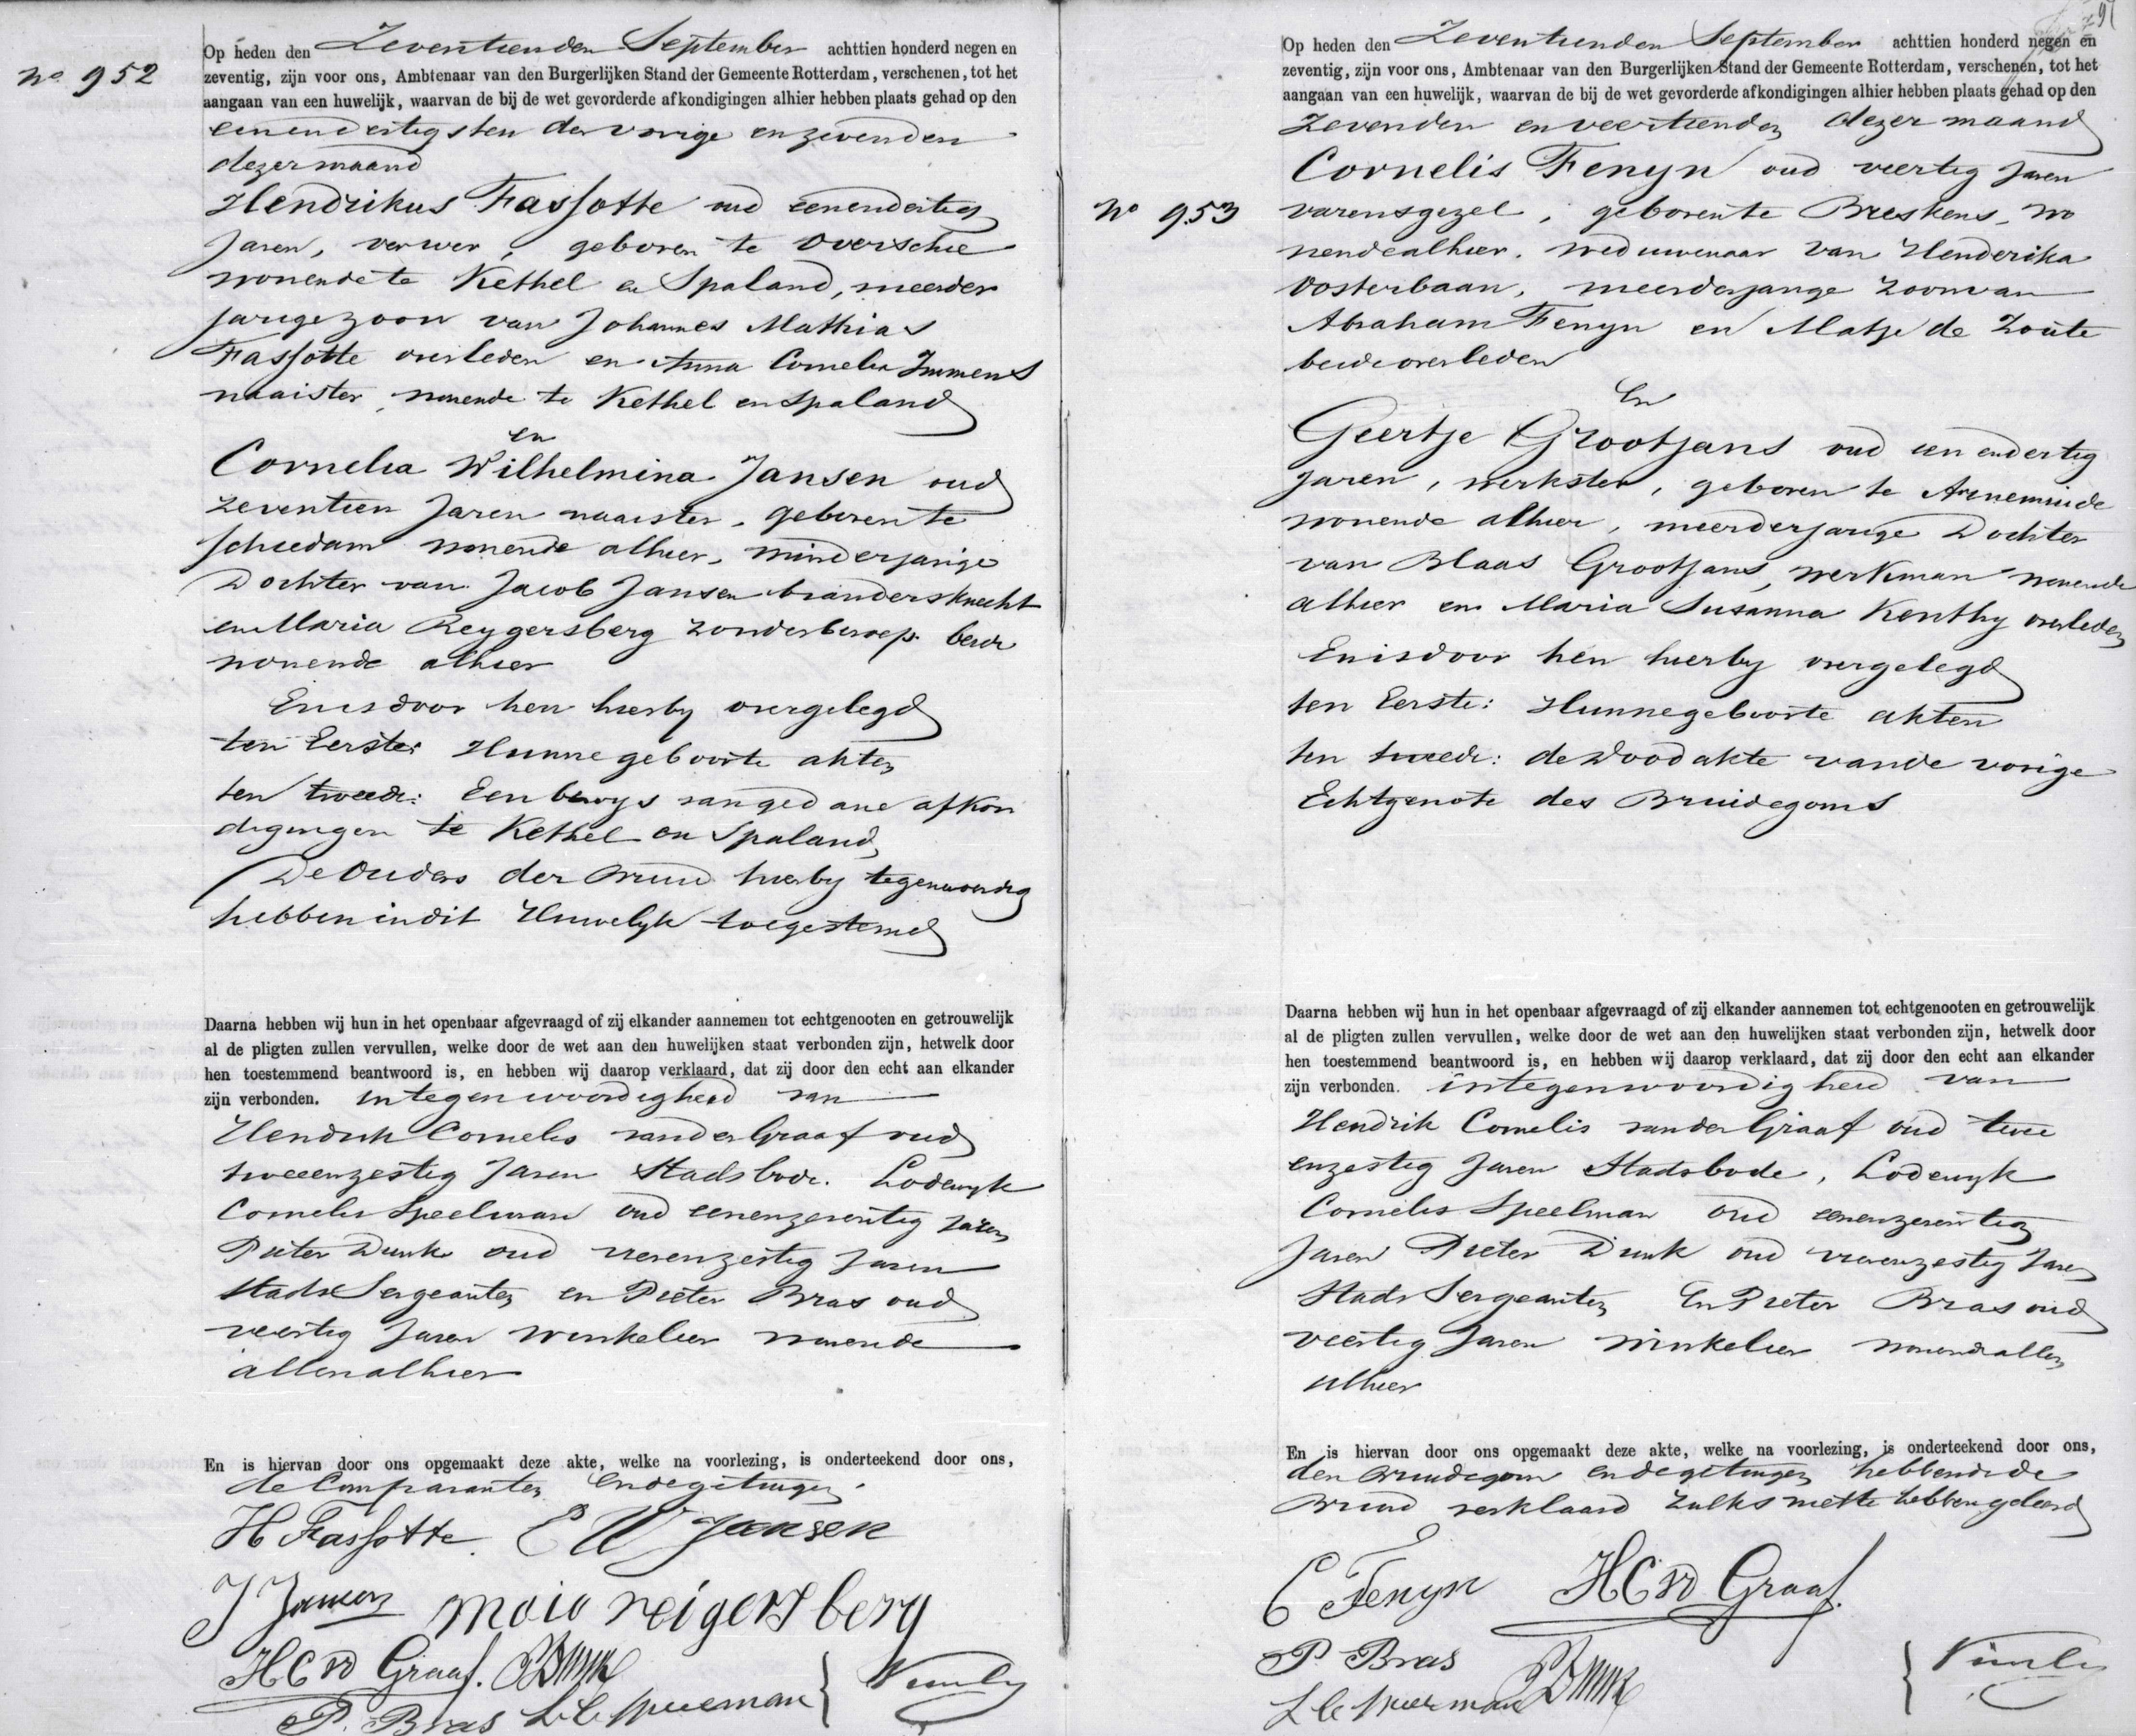 No 952
Op heden den Zeventienden September achttien honderd negen en
zeventig, zijn voor ons, Ambtenaar van den Burgerlijken Stand der Gemeente Rotterdam, verschenen, tot het
aangaan van een huwelijk, waarvan de bij de wet gevorderde afkondigingen alhier hebben plaats gehad op den
eenendertigsten der vorige en zevenden
dezer maand
Hendrikus Fassotte oud eenendertig
Jaren, verwer, geboren te Overschie
wonende te Kethel en Spaland, meerder
jarige zoon van Johannes Mathias
Fassotte overleden en Anna Cornelia Immens
naaister, wonende te Kethel en Spaland
en
Cornelia Wilhelmina Jansen oud
zeventien Jaren naaister, geboren te
Schiedam wonende alhier, minderjarige
Dochter van Jacob Jansen brandersknecht
en Maria Reygersberg zonder beroep beide
wonende alhier
En is door hen hierby overgelegd
ten Eerste: Hunne geboorte akten
ten tweede: Een bewys van gedane afkon
digingen te Kethel en Spaland
De Ouders der Bruid hierby tegenwoordig
hebben in dit Huwelyk toegestemd
Daarna hebben wij hun in het openbaar afgevraagd of zij elkander aannemen tot echtgenooten en getrouwelijk
al de pligten zullen vervullen, welke door de wet aan den huwelijken staat verbonden zijn, hetwelk door
hen toestemmend beantwoord is, en hebben wij daarop verklaard, dat zij door den echt aan elkander
zijn verbonden. in tegenwoordigheid van
Hendrik Cornelis van der Graaf oud
tweeenzestig Jaren Stadsbode. Lodewyk
Cornelis Speelman oud eenenzeventig Jaren
Pieter Dunk oud vierenzestig Jaren
Stads Sergeanten en Pieter Bras oud
veertig Jaren winkelier wonende
allen alhier
En is hiervan door ons opgemaakt deze akte, welke na voorlezing, is onderteekend door ons,
de Comparanten en de getuigen.
H Fassotte. C W Jansen
J Jansen maia reigersberg
HCvd Graaf. PDunk
P. Bras L. C. Speelman
No 953
Op heden den Zeventienden September achttien honderd negen en
zeventig, zijn voor ons, Ambtenaar van den Burgerlijken Stand der Gemeente Rotterdam, verschenen, tot het
aangaan van een huwelijk, waarvan de bij de wet gevorderde afkondigingen alhier hebben plaats gehad op den
Zevenden en veertienden dezer maand
Cornelis Fenyn oud veertig Jaren
varensgezel, geboren te Breskens, wo
nende alhier. weduwenaar van Henderika
Oosterbaan, meerderjarige zoon van
Abraham Fenyn en Matje de Zoute
beide overleden
En
Geertje Grootjans oud een en dertig
Jaren, werkster, geboren te Arnemuide
wonende alhier, meerderjarige Dochter
van Blaas Grootjans, werkman wonende
alhier en Maria Susanna Konthy overleden
En is door hen hierby overgelegd
ten Eerste: Hunne geboorte akten
ten tweede: de Doodakte van de vorige
Echtgenote des Bruidegoms
Daarna hebben wij hun in het openbaar afgevraagd of zij elkander aannemen tot echtgenooten en getrouwelijk
al de pligten zullen vervullen, welke door de wet aan den huwelijken staat verbonden zijn, hetwelk door
hen toestemmend beantwoord is, en hebben wij daarop verklaard, dat zij door den echt aan elkander
zijn verbonden. in tegenwoordigheid van
Hendrik Cornelis van der Graaf oud twee
enzestig Jaren Stadsbode, Lodewyk
Cornelis Speelman oud eenenzeventig
Jaren Pieter Dunk oud vierenzestig Jaren
Stads Sergeanten En Pieter Bras oud
veertig Jaren winkelier wonende allen
alhier
En is hiervan door ons opgemaakt deze akte, welke na voorlezing, is onderteekend door ons,
den Bruidegom en de getuigen hebbende de
Bruid verklaard zulks niette hebben geleerd
C Fenyn HCvd Graaf.
P. Bras PDunk
L C Speelman